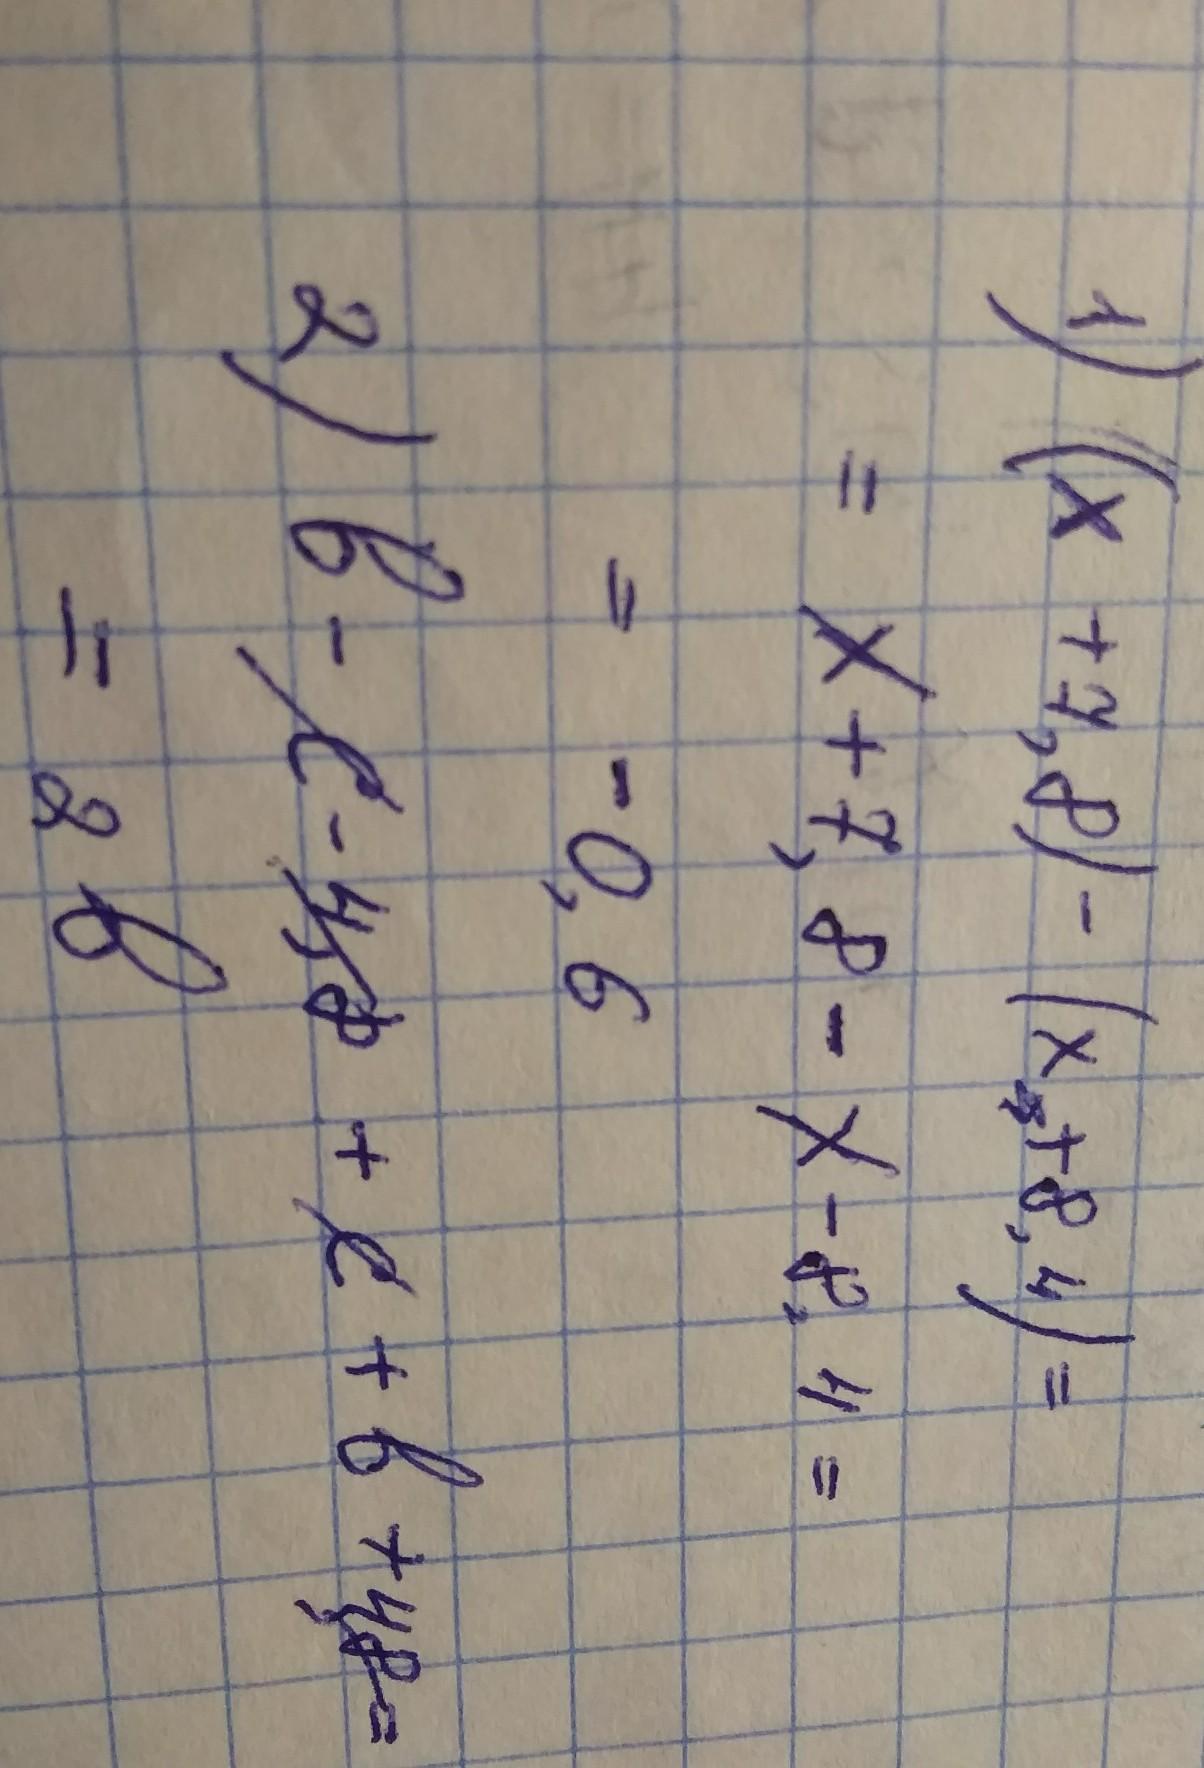 1) (x + 7,8) - (x + 8,4) =
= x + 7,8 - x - 8,4 =
= - 0,6
2) b - c - 4,8 + c + b + 4,8 =
= 2 b